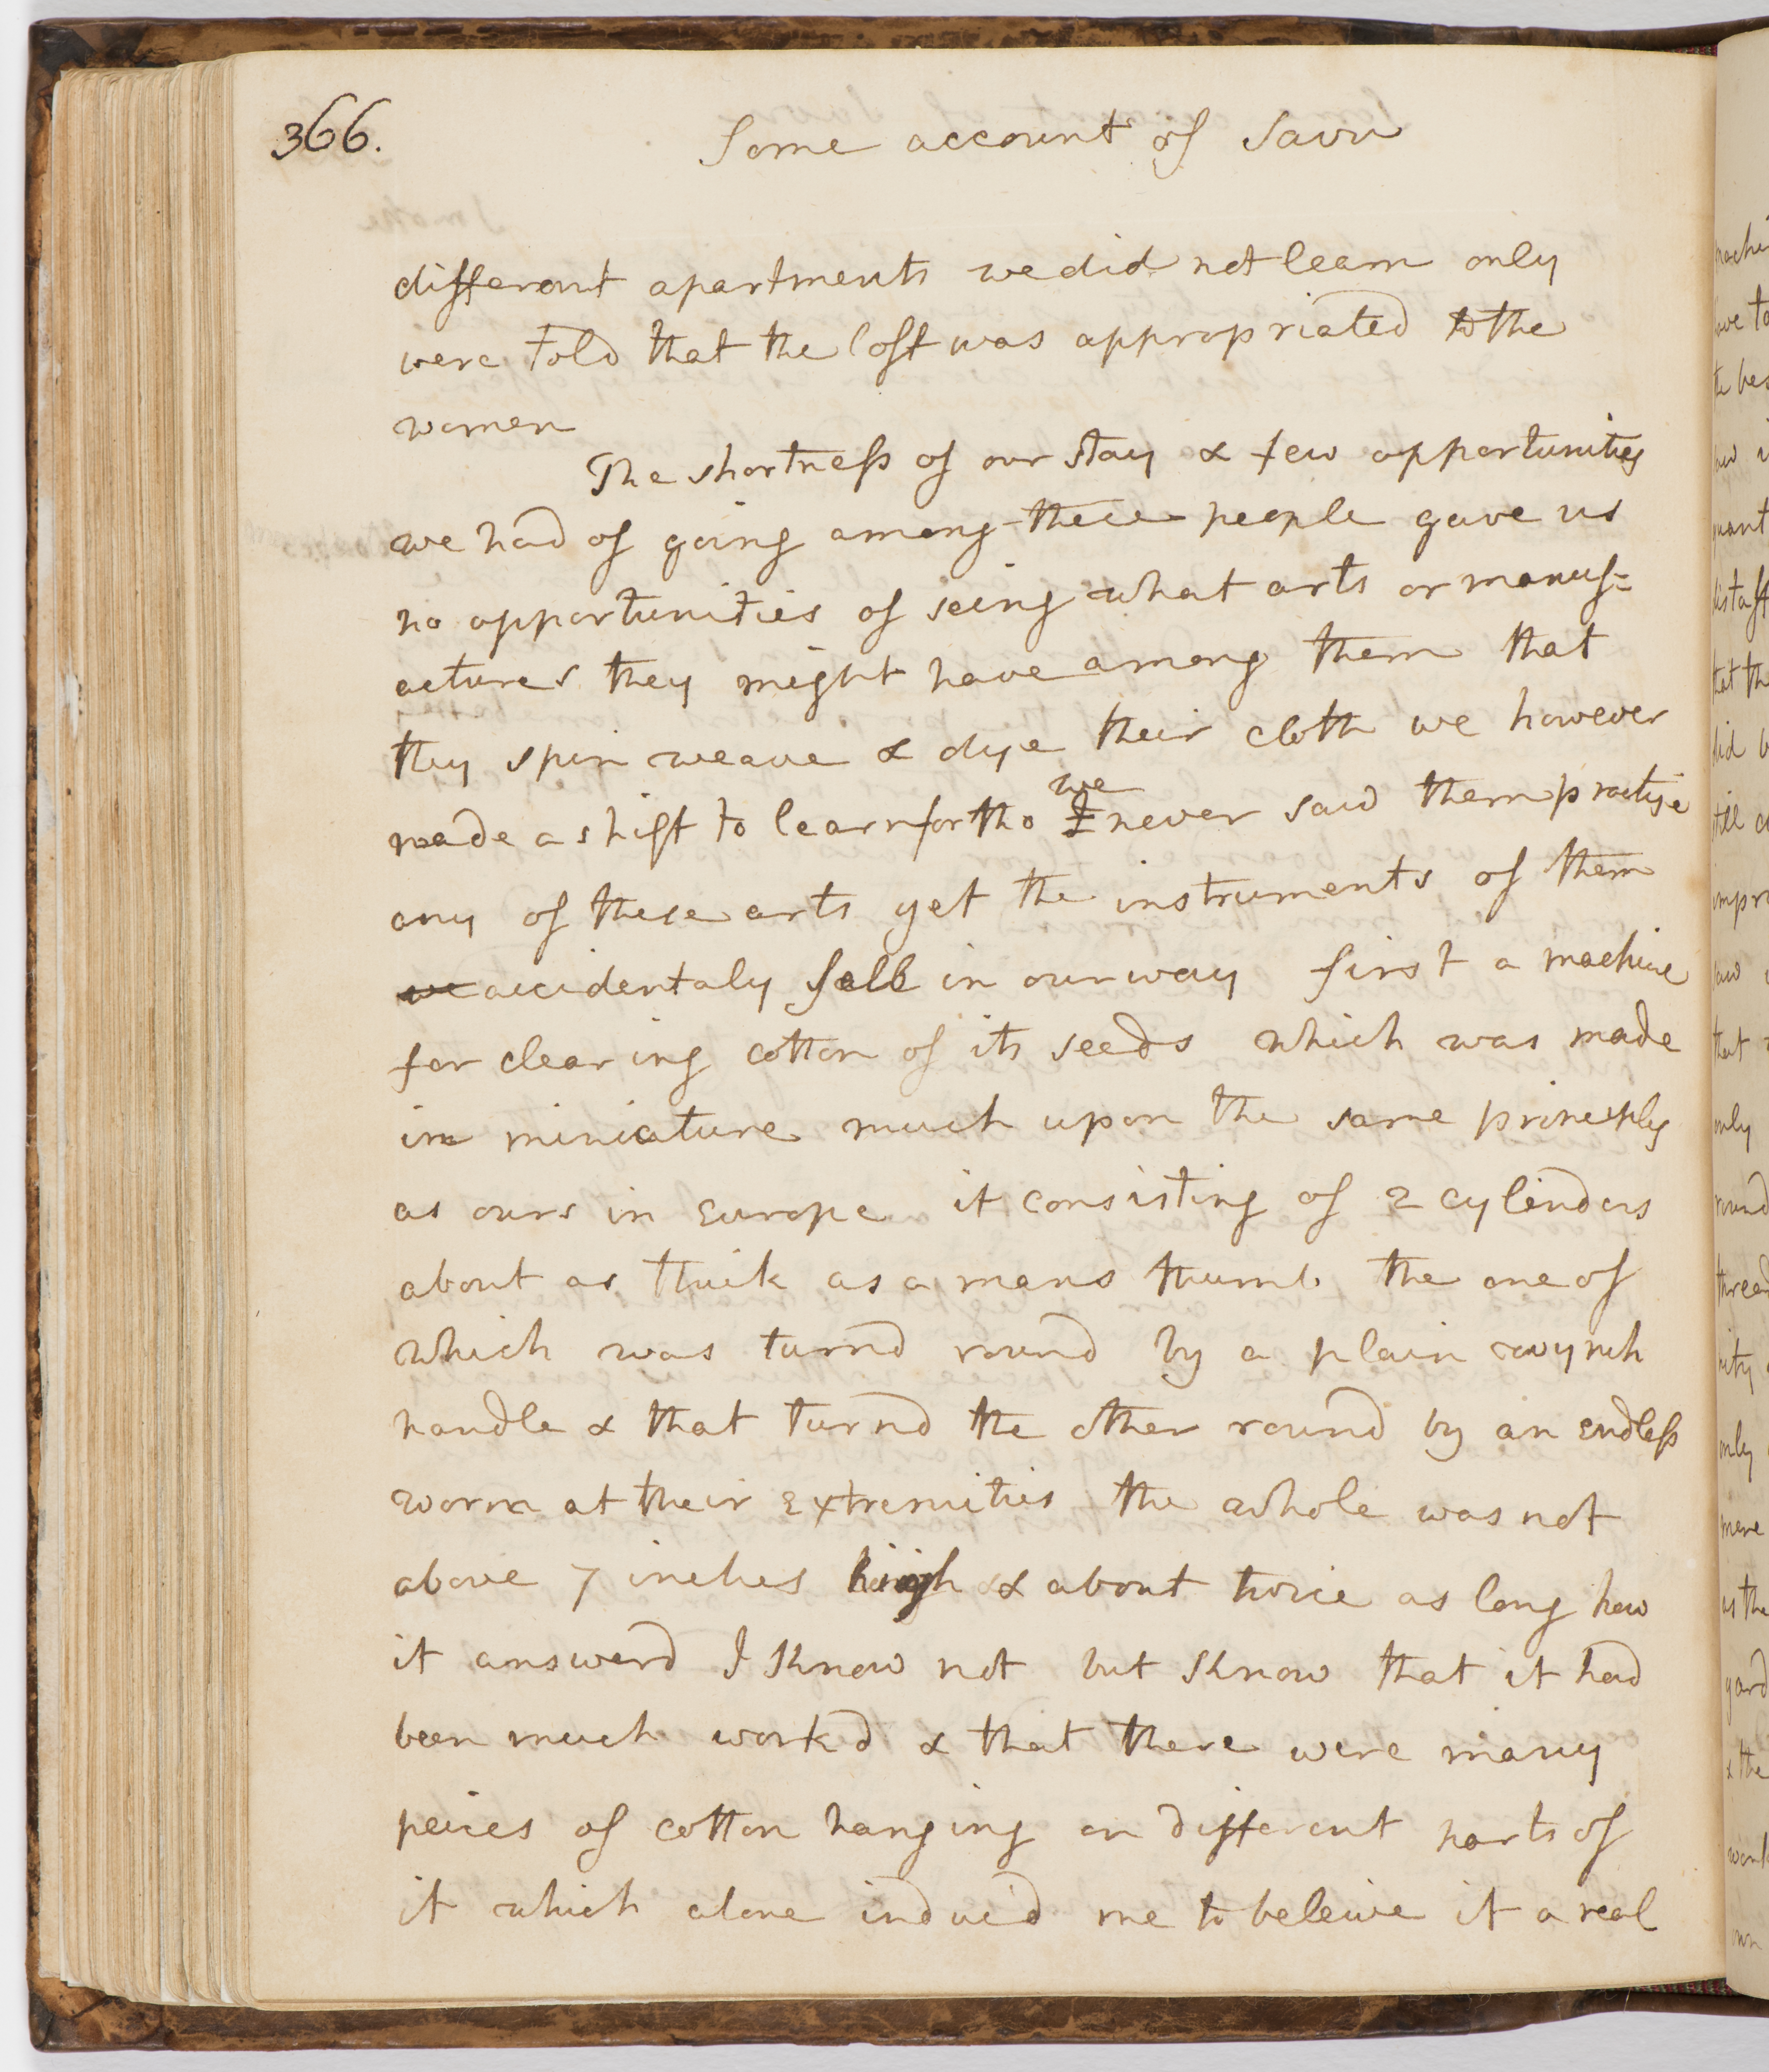 366.
Some account of Savu
different apartments we did not learn only
were told that the loft was appropriated to the
women
The shortness of our stay & few opportunities
we had of going among these people gave us
no opportunities of seing what arts or manuf=
actures they might have among them that
they spin weave & dye their cloth we however
we
made a shift to learn for tho I never saw them practise
any of these arts yet the instruments of them
we accidentaly fell in our way first a machine
for clearing cotton of its seeds which was made
in miniature much upon the same principles
as ours in Europe it consisting of 2 cylinders
about as thick as a mans thumb the one of
which was turnd round by a plain wynch
handle & that turnd the other round by an endless
worm at their extremities the whole was not
above 7 inches high & about twice as long how
it answerd I know not but know that it had
been much workd & that there were many
peices of cotton hanging on different parts of
it which alone induc'd me to beleive it a real